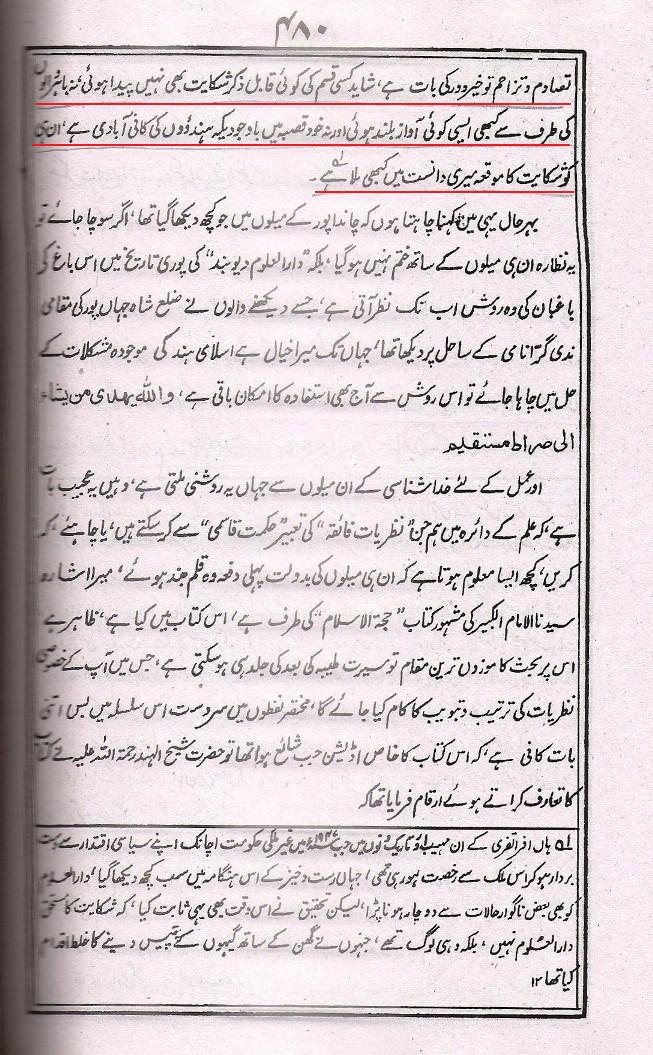 ۴۸۰
تصادم و تزاحم تو خیر دور کی بات ہے، شاید کسی قسم کی کوئی قابل ذکر شکایت بھی نہیں پیدا ہوئی، نہ باہر والوں
کی طرف سے کبھی ایسی کوئی آواز بلند ہوئی اور نہ خود قصبہ میں باوجودیکہ ہندوؤں کی کافی آبادی ہے، ان ہی
کو شکایت کا موقعہ میری دانست میں کبھی ملا ہے۔ لہ
بہر حال یہی میں کہنا چاہتا ہوں کہ چاندا پور کے میلوں میں جو کچھ دیکھا گیا تھا، اگر سوچا جائے تو
یہ نظارہ ان ہی میلوں کے ساتھ ختم نہیں ہو گیا، بلکہ "دارالعلوم دیوبند" کی پوری تاریخ میں اس باغ کی
باغبان کی وہ روش اب تک نظر آتی ہے، جسے دیکھنے والوں نے ضلع شاہ جہاں پور کی مقامی
ندی گرّا نامی کے ساحل پر دیکھا تھا، جہاں تک میرا خیال ہے اسلامی ہند کی موجودہ مشکلات کے
حل میں چاہا جائے تو اس روش سے آج بھی استفادہ کا امکان باقی ہے، واللہ یہدی من یشاء
الی صراط مستقیم
اور عمل کے لئے خدا شناسی کے ان میلوں سے جہاں یہ روشنی ملتی ہے، وہیں یہ عجیب بات
ہے، کہ علم کے دائرہ میں ہم جن "نظریات فائقہ" کی تعبیر "حکمت قاسمی" سے کر سکتے ہیں، یا چاہئے، کہ
کریں، کچھ ایسا معلوم ہوتا ہے کہ ان ہی میلوں کی بدولت پہلی دفعہ وہ قلم بند ہوئے، میرا اشارہ
سیدنا الامام الکبیر کی مشہور کتاب "حجۃ الاسلام" کی طرف ہے، اس کتاب میں کیا ہے، ظاہر ہے
اس پر بحث کا موزوں ترین مقام تو سیرت طیبہ کی بعد کی جلد ہی ہو سکتی ہے، جس میں آپ کے خصوصی
نظریات کی ترتیب و تبویب کا کام کیا جائے گا، مختصر لفظوں میں سر دست اس سلسلہ میں بس اتنی
بات کافی ہے، کہ اس کتاب کا خاص اڈیشن جب شائع ہوا تھا تو حضرت شیخ الہند رحمۃ اللہ علیہ نے کتاب
کا تعارف کراتے ہوئے ارقام فرمایا تھا کہ
لہ ہاں افراتفری کے ان مہیب اور تاریک دنوں میں جب ۱۹۴۷ء میں غیر ملکی حکومت اچانک اپنے سیاسی اقتدار سے دست
بردار ہو کر اس ملک سے رخصت ہو رہی تھی، جہاں رست و خیز کے اس ہنگامہ میں سب کچھ دیکھا گیا، دارالعلوم
کو بھی بعض ناگوار حالات سے دوچار ہونا پڑا، لیکن تحقیق نے اس وقت بھی یہی ثابت کیا، کہ شکایت کا مستحق
دارالعلوم نہیں، بلکہ وہی لوگ تھے، جنہوں نے گھن کے ساتھ گیہوں کے پیس دینے کا غلط اقدام
کیا تھا ۱۲